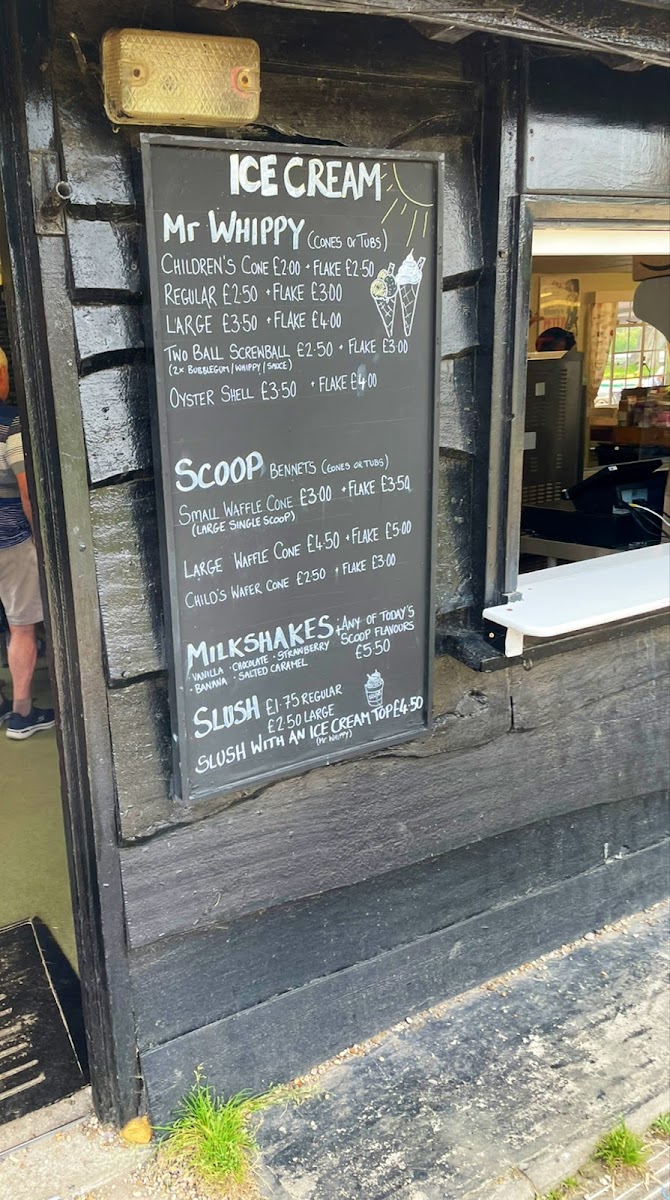 ICE CREAM
Mr WHIPPY (CONES or TUBS)
CHILDREN'S CONE £2.00 + FLAKE £2.50
REGULAR £2.50 + FLAKE £3.00
LARGE £3.50 + FLAKE £4.00
TWO BALL SCREWBALL £2.50 + FLAKE £3.00
(2x BUBBLEGUM/WHIPPY/SAUCE)
OYSTER SHELL £3.50 + FLAKE £4.00
SCOOP BENNETS (CONES or TUBS)
SMALL WAFFLE CONE £3.00 + FLAKE £3.50
(LARGE SINGLE SCOOP)
LARGE WAFFLE CONE £4.50 + FLAKE £5.00
CHILD'S WAFER CONE £2.50 + FLAKE £3.00
MILKSHAKES + ANY OF TODAY'S
SCOOP FLAVOURS
£5.50
VANILLA · CHOCOLATE · STRAWBERRY
· BANANA · SALTED CARAMEL
SLUSH £1.75 REGULAR
£2.50 LARGE
SLUSH WITH AN ICE CREAM TOP £4.50
(Mr WHIPPY)